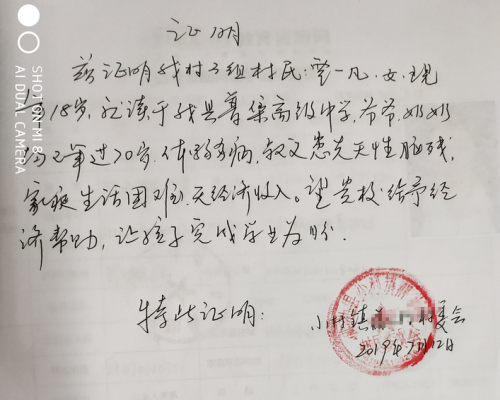 证明
兹证明我村3组村民:贾一凡,女,现
年18岁,就读于我县普集高级中学,爷爷、奶奶
均已年过70岁,体弱多病,叔父患先天性脑残,
家庭生活困难,无经济收入。望贵校给予经
济帮助,让孩子完成学业为盼.
特此证明:
小村镇 村委会
2019年7月12日
SHOT ON MI 8
AI DUAL CAMERA